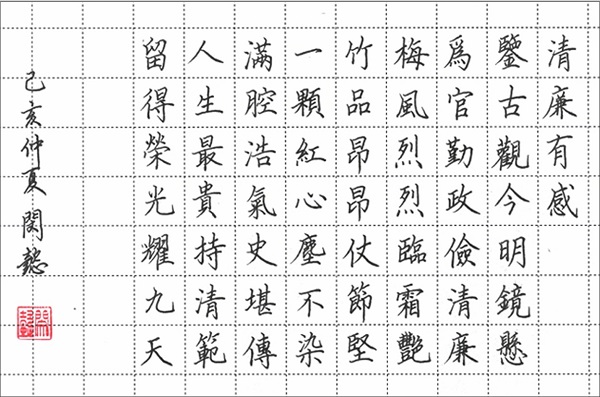 清廉有感
鑒古觀今明鏡懸
爲官勤政儉清廉
梅風烈烈臨霜艷
竹品昂昂仗節堅
一顆紅心塵不染
滿腔浩氣史堪傳
人生最貴持清範
留得榮光耀九天
己亥仲夏閔